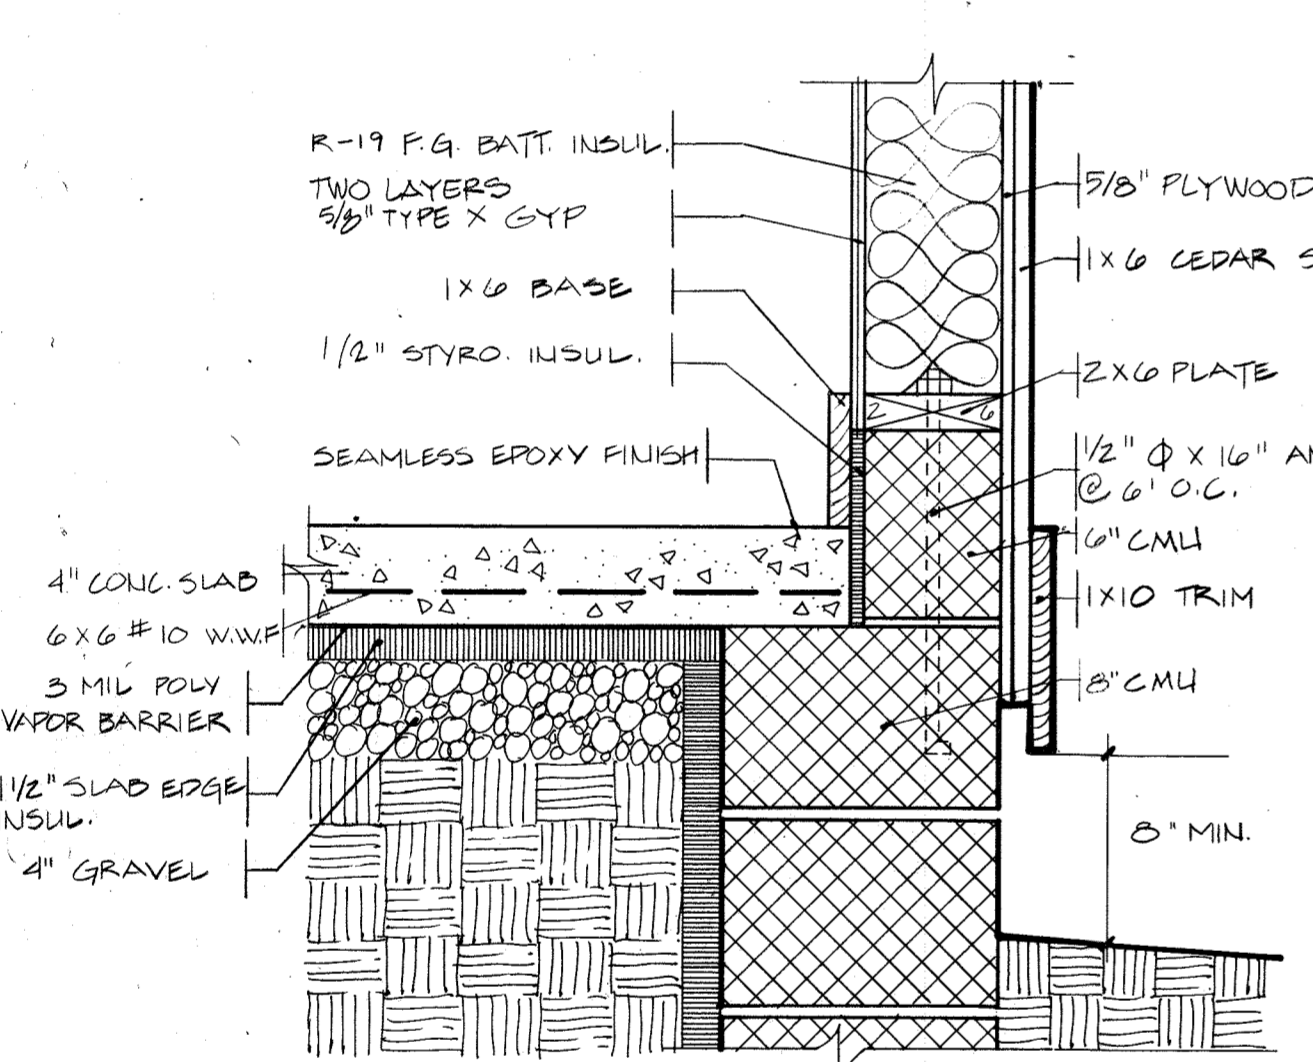 R-19 F.G. BATT. INSUL.
TWO LAYERS
5/8" TYPE X GYP
1X6 BASE
1/2" STYRO. INSUL.
SEAMLESS EPOXY FINISH
4" CONC. SLAB
6X6 #10 W.W.F
3 MIL POLY
VAPOR BARRIER
1 1/2" SLAB EDGE
NSUL.
4" GRAVEL
5/8" PLYWOOD
1X6 CEDAR S
2X6 PLATE
2 6
1/2" Φ X 16" AN
@ 6' O.C.
6" CMU
1X10 TRIM
8" CMU
8" MIN.